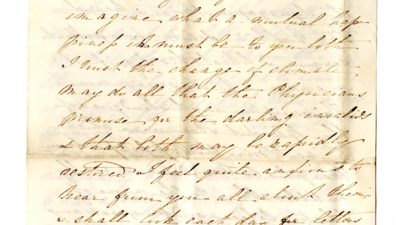 imagine what a mutual hap
piness it must be to you both
I trust the change of climate
may do all that the Physicians
promise for the darling invalids
& that both may be rapidly
restored. I feel quite anxious to
hear from you all about them
& shall look each day for letters